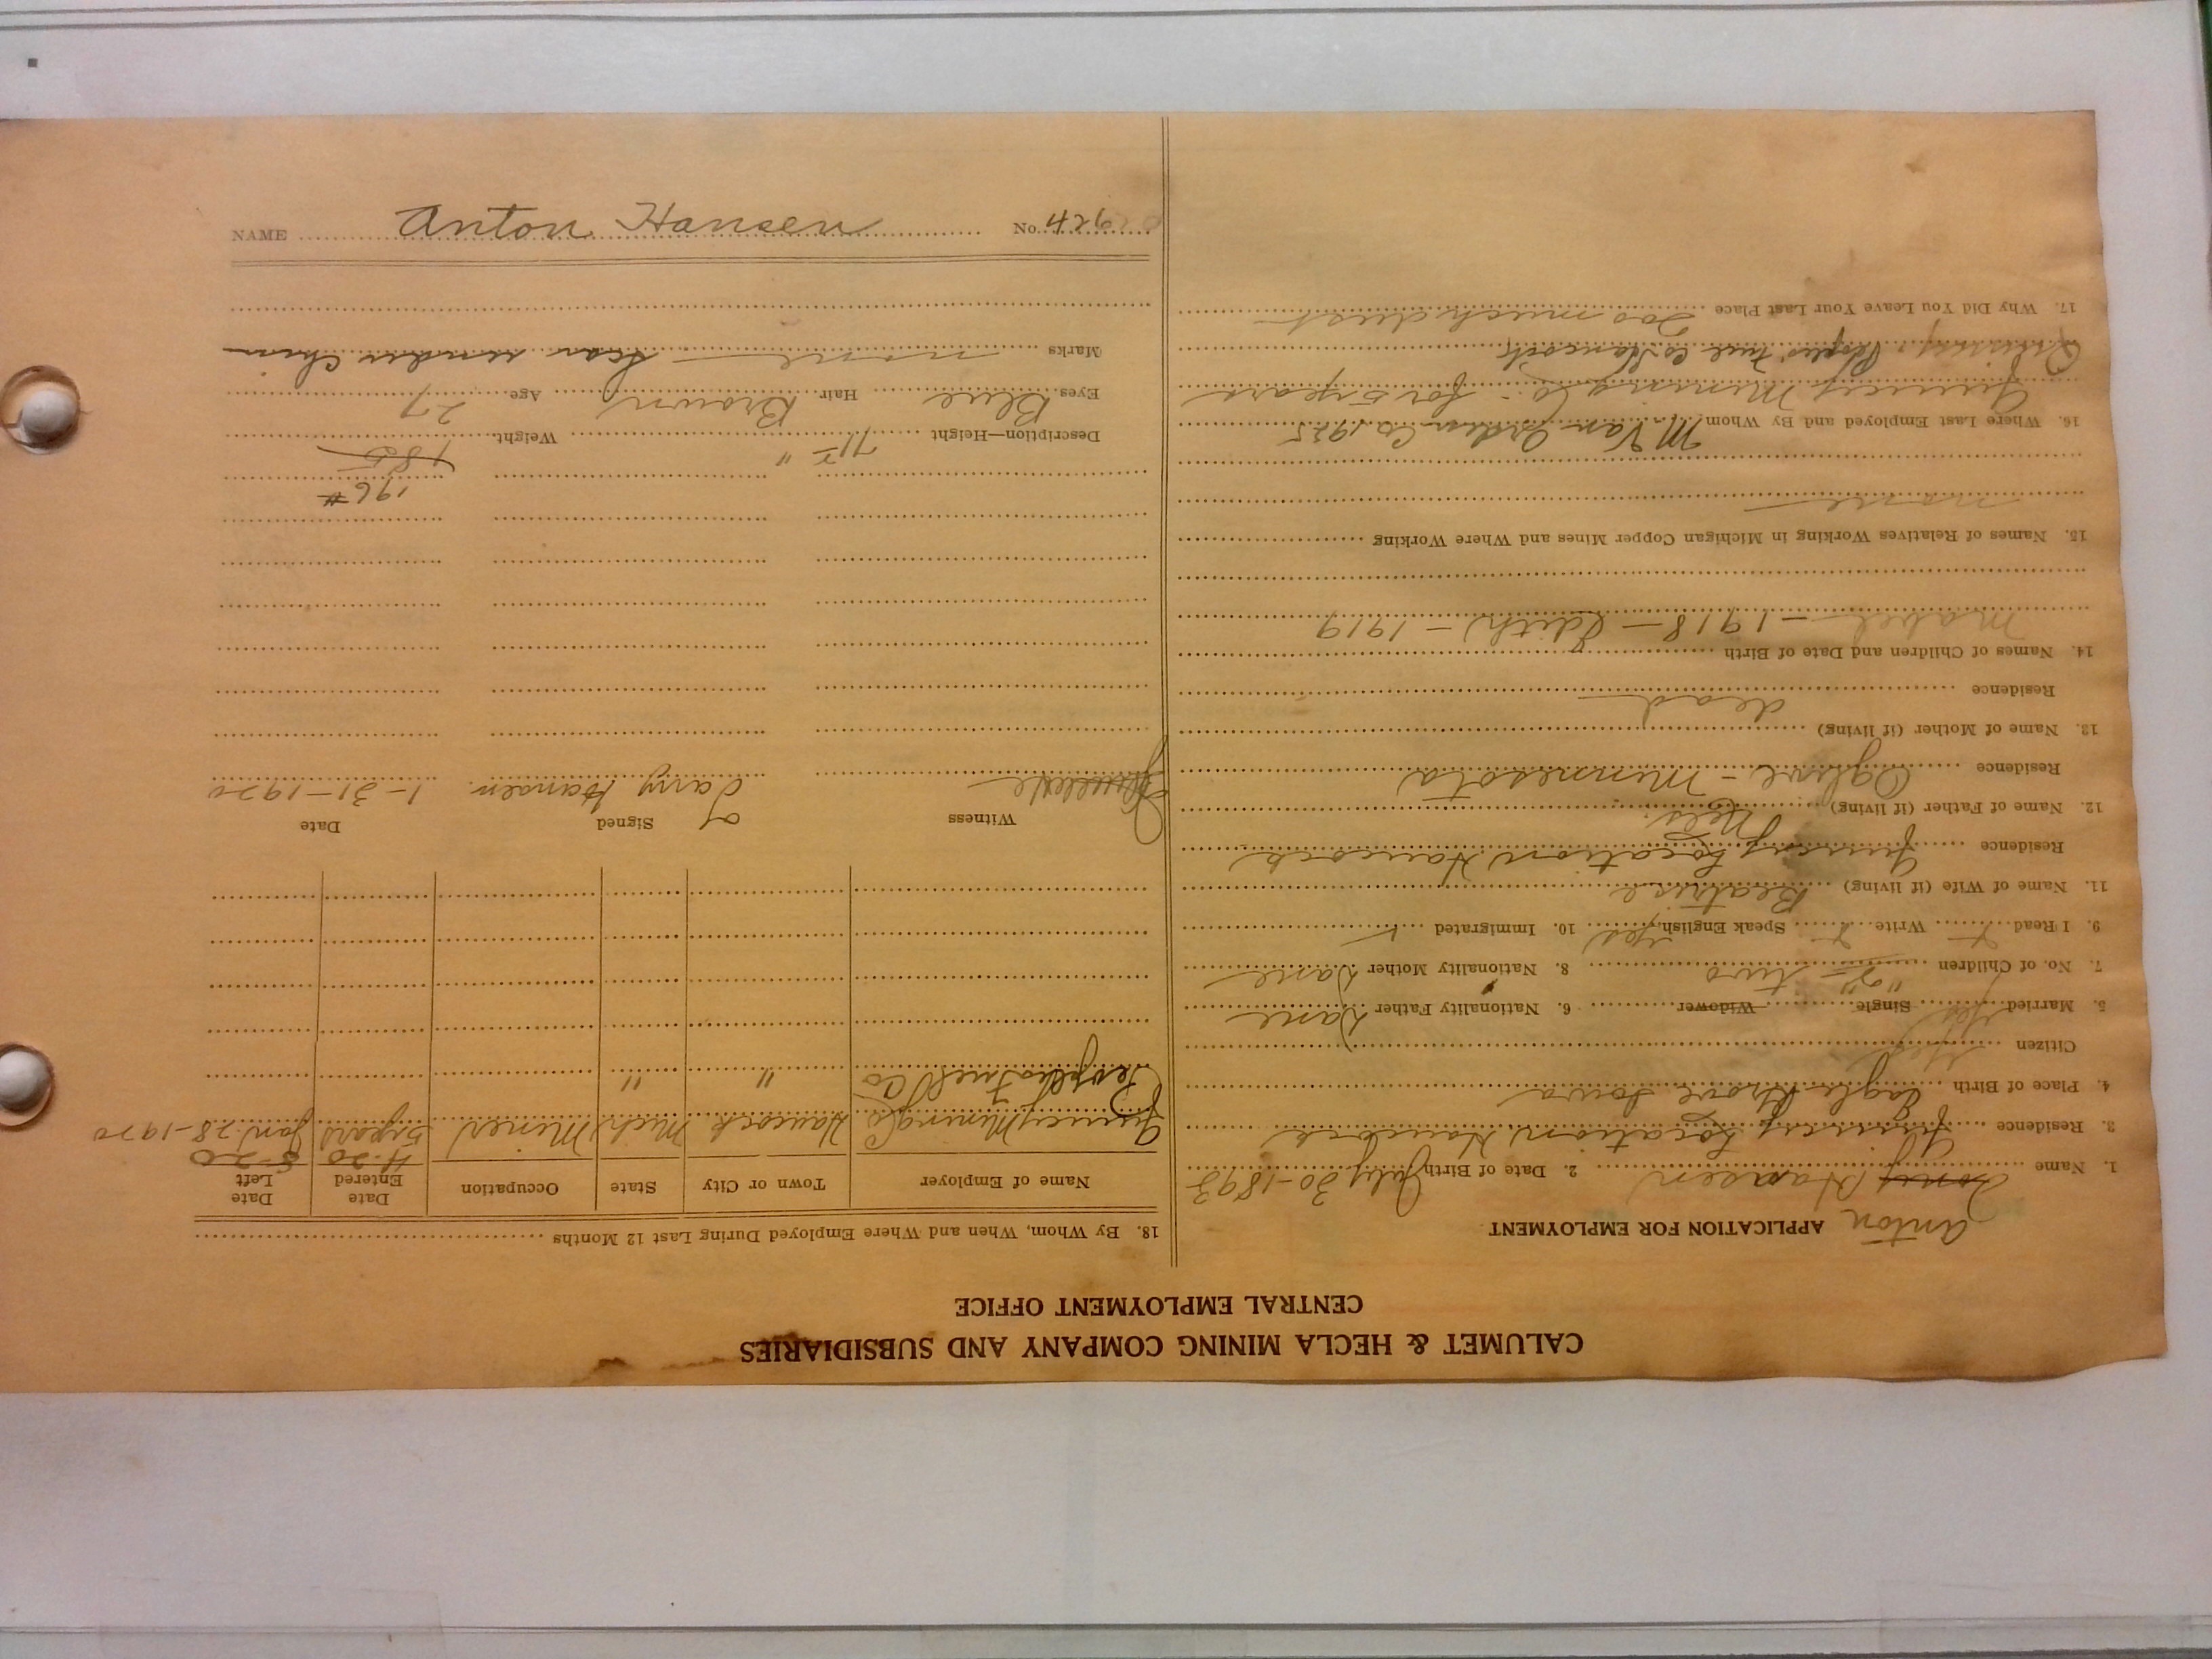 CALUMET & HECLA MINING COMPANY AND SUBSIDIARIES
CENTRAL EMPLOYMENT OFFICE
Anton APPLICATION FOR EMPLOYMENT
1. Name Tony Hansen 2. Date of Birth July 30-1893
3. Residence Quincy Location Hancock
4. Place of Birth Eagle Grove Iowa
Citizen Yes
5. Married Yes Single Widower 6. Nationality Father Dane
7. No. of Children "2" two 8. Nationality Mother Dane
9. I Read x Write x Speak English, yes 10. Immigrated
11. Name of Wife (if living) Beatrise
Residence Quincy Location Hancock
12. Name of Father (if living) Nels.
Residence Ogilvie - Minnesota
13. Name of Mother (if living) dead
Residence
14. Names of Children and Date of Birth
Mabel - 1918 - Edith - 1919
15. Names of Relatives Working in Michigan Copper Mines and Where Working
none
16. Where Last Employed and By Whom M Van Orden Co 1925
Quincy Mining Co - for 5 years
Peoples Fuel Co Hancock
17. Why Did You Leave Your Last Place Too much dust
18. By Whom, When and Where Employed During Last 12 Months
Name of Employer Town or City State Occupation Date Entered Date Left
4-20 5-20
Quincy Mining Co Hancock Mich Miner 5 years Jan. 28-1920
Peoples Fuel Co " "
Witness Signed Date
Tany Hansen 1-31-1920
196 #
185
Description—Height 71 1/2 " Weight
Eyes Blue Hair Brown Age 27
Marks none Scar under Chin
NAME Anton Hansen No. 426